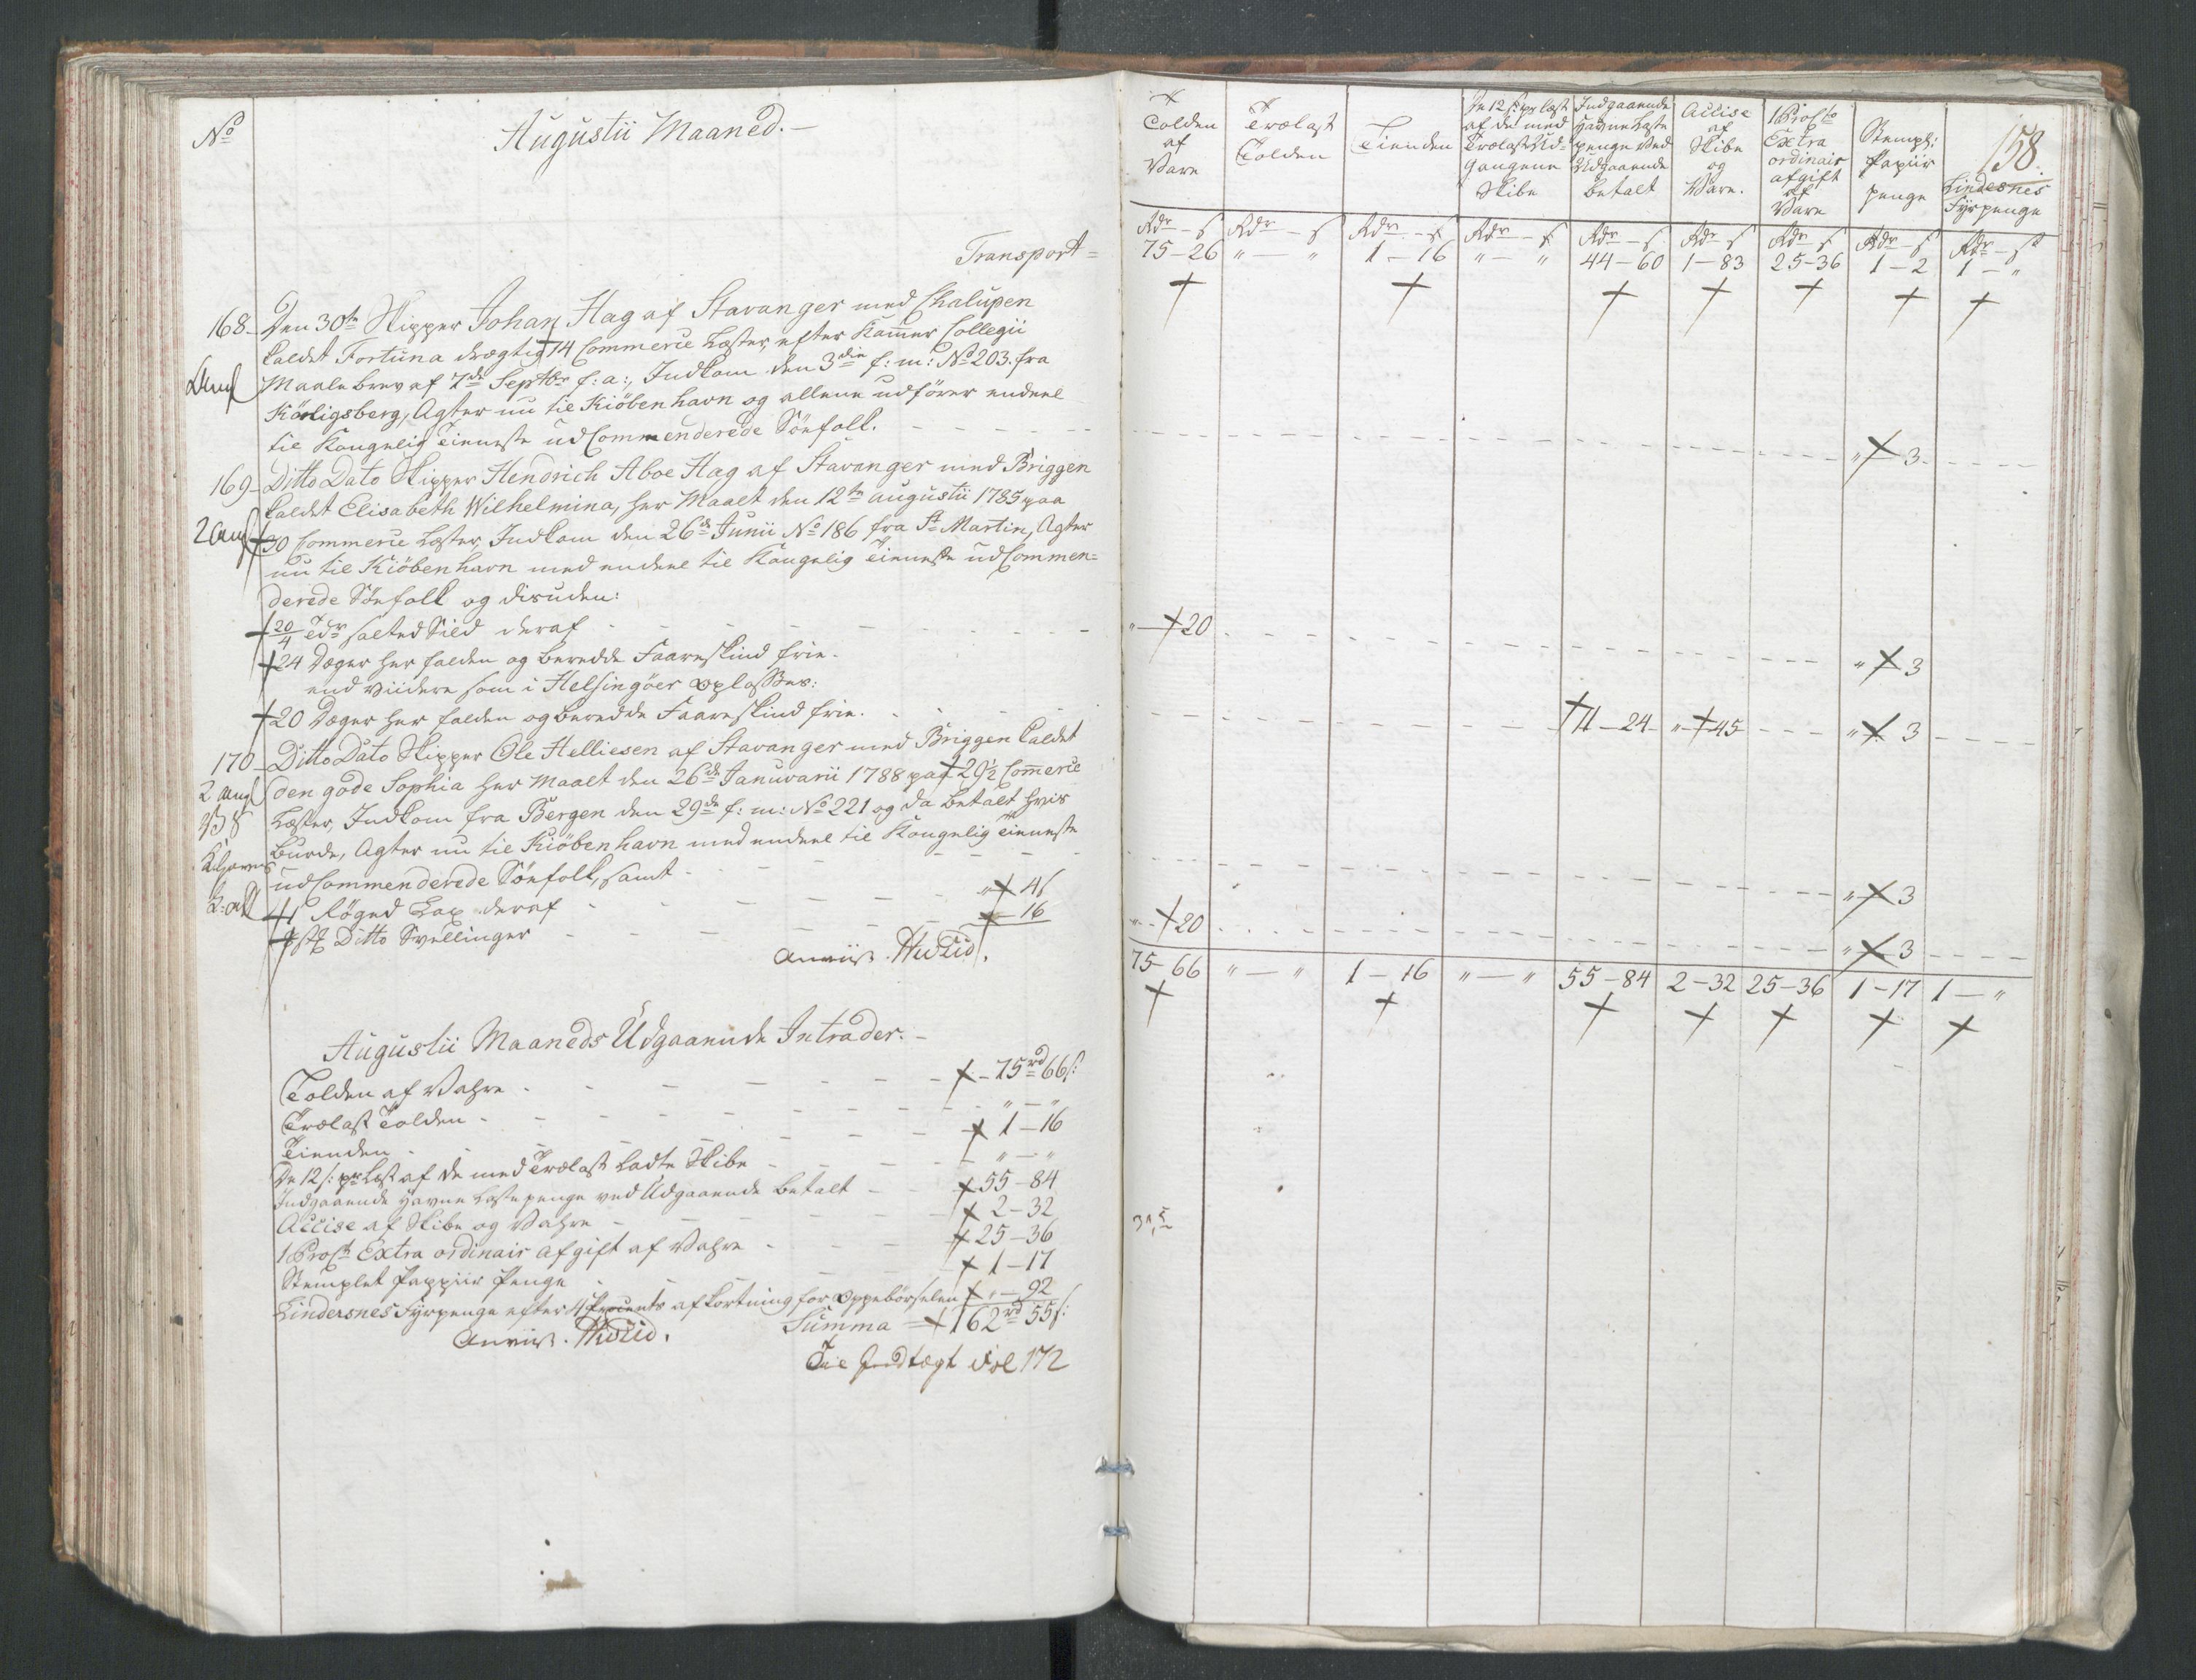 No
Augustii Maaned.-
Transport =
168- Den 30te Skipper Johan Hag af Stavanger med Chalupen
kaldet Fortuna drægtig 14 Commerce Læster, efter Kamer Collegii
Maalebrev af 7de Septbr f: a:, Indkom den 3die f: m: No 203. fra
Königsberg, Agter nu til Kiöbenhavn og allene udförer endeel
til Kongelig Tieneste udCommenderede Söefolk.
169- Ditto Dato Skipper Hendrich Aboe Hag af Stavanger med Briggen
kaldet Elisabeth Wilhelmina, her Maalt den 12te Augustii 1785 paa
30 Commerce Læster, Indkom den 26de Junii No 186 fra St Martin, Agter
nu til Kiöbenhavn med endeel til Kongelig Tieneste udCommen=
derede Söefolk og desuden:
20/4 Tdr salted Sild deraf
24 Deger her falden og beredde Faareskind frie.
end viidere som i Helsingöer oplosses:
20 Deger her falden og beredde Faareskind frie.
170- Ditto Dato Skipper Ole Helliesen af Stavanger med Briggen kaldet
2 Aug den gode Sophia her Maalt den 26de Januarii 1788 paa 29½ Comerce
Læster, Indkom fra Bergen den 29de f: m: No 221 og da betalt hvis
burde, Agter nu til Kiöbenhavn med endeel til Kongelig Tieneste
udCommenderede Söefolk, samt
Röged Lax deraf " 4s
Ditto Svellinger - 16
Anviist.
Augustii Maaneds Udgaaende Intrader.-
Tolden af Vahre - 75rd 66s:
Trælast Tolden " - "
Tienden 1 - 16
De 12s: pr Læst af de med Trælast Ladte Skibe " - "
Indgaaende Havne Læstepenge ved Udgaaende betalt 55 - 84
Accise af Skibe og Vahre 2 - 32
1 ProCto Extra ordinair afgift af Vahre 25 - 36
Stemplet Pappiir Penge 1 - 17
Lindersnes Fyrpenge efter 4 Procents afkortning for Oppebörselen " - 92
Summa = 162rd 55s:
Anviist.
Til Indtægt Fol 172
158.
Tolden af Vare
Trælast Tolden
Tienden
De 12 s: pr læst af de med Trælast Udgangene Skibe
Indgaaende Havne Læste penge ved Udgaaende betalt
Accise af Skibe og Vare.
1 ProCto Extra ordinair afgift af Vare
Stempl: Papiir penge
Lindesnes Fyrpenge
Rdr - s Rdr - s Rdr - s Rdr - s Rdr - s Rdr - s Rdr - s Rdr - s Rdr - s
75-26 " - " 1 - 16 " - " 44-60 1-83 25-36 1-2 1 - "
" - 3
" - 20
" - 3
11-24 " - 45 " - 3
" - 3
" - 20
" - 3
75-66 " - " 1 - 16 " - " 55-84 2-32 25-36 1-17 1 - "